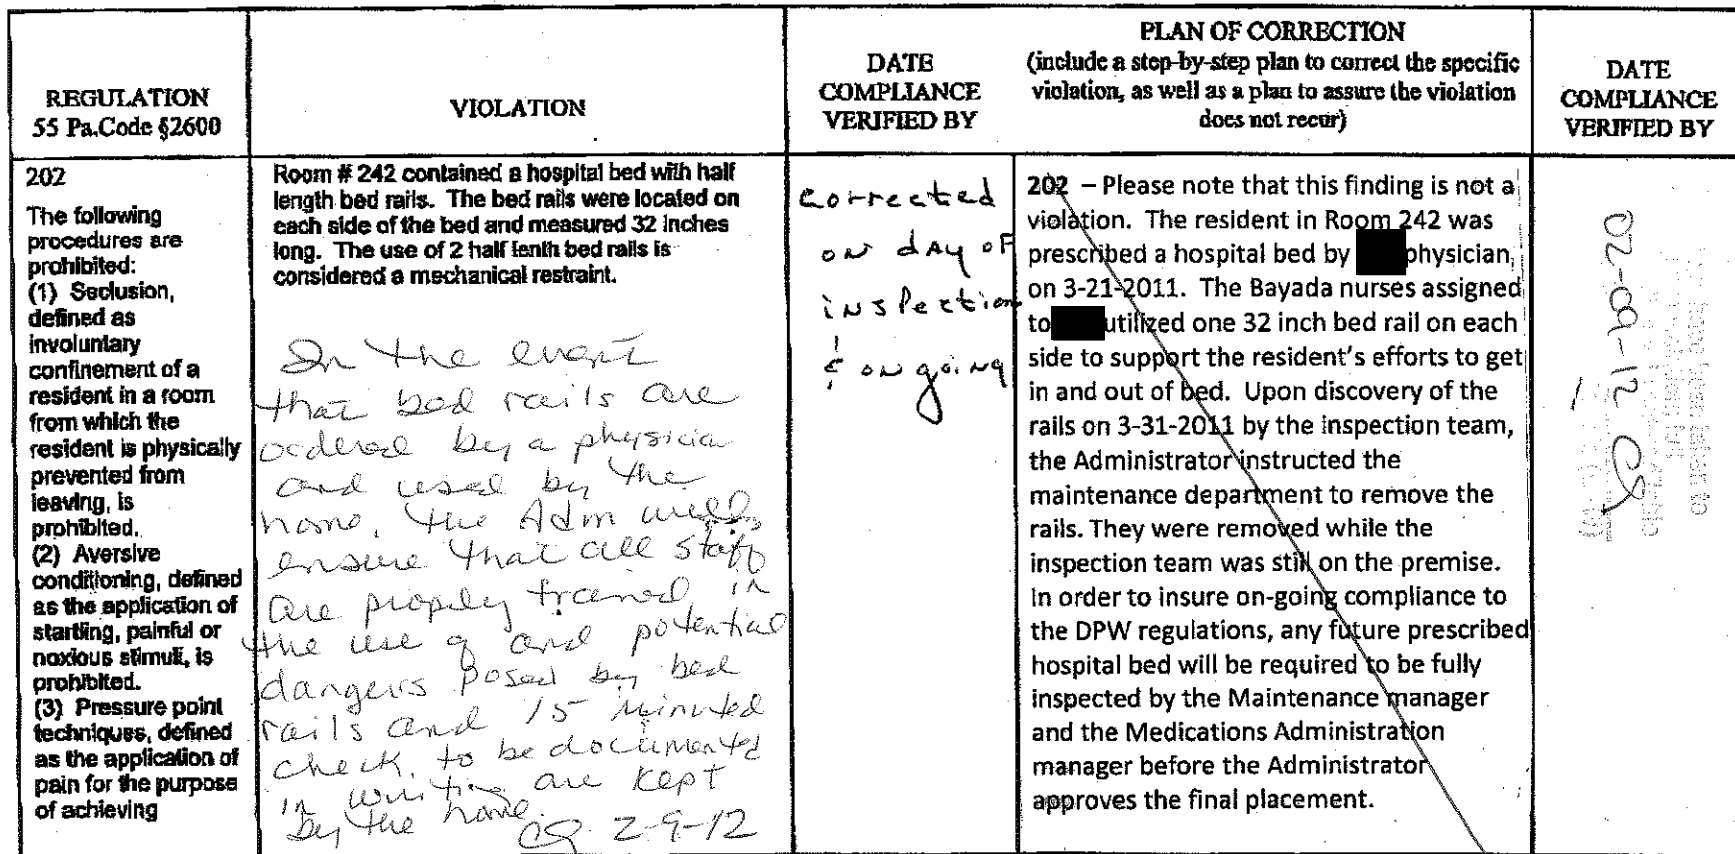 REGULATION
55 Pa.Code §2600
VIOLATION
DATE
COMPLIANCE
VERIFIED BY
PLAN OF CORRECTION
(include a step-by-step plan to correct the specific
violation, as well as a plan to assure the violation
does not recur)
DATE
COMPLIANCE
VERIFIED BY
202
The following
procedures are
prohibited:
(1) Seclusion,
defined as
involuntary
confinement of a
resident in a room
from which the
resident is physically
prevented from
leaving, is
prohibited.
(2) Aversive
conditioning, defined
as the application of
startling, painful or
noxious stimuli, is
prohibited.
(3) Pressure point
techniques, defined
as the application of
pain for the purpose
of achieving
Room # 242 contained a hospital bed with half
length bed rails. The bed rails were located on
each side of the bed and measured 32 inches
long. The use of 2 half lenth bed rails is
considered a mechanical restraint.
In the event
that bed rails are
ordered by a physician
and used by the
home, the Adm will
ensure that all staff
are properly trained in
the use of and potential
dangers posed by bed
rails and 15 minuted
check, to be documented
in writing are kept
by the home.
CQ 2-9-12
corrected
on day of
inspection
& ongoing
202 – Please note that this finding is not a
violation. The resident in Room 242 was
prescribed a hospital bed by physician,
on 3-21-2011. The Bayada nurses assigned
to utilized one 32 inch bed rail on each
side to support the resident's efforts to get
in and out of bed. Upon discovery of the
rails on 3-31-2011 by the inspection team,
the Administrator instructed the
maintenance department to remove the
rails. They were removed while the
inspection team was still on the premise.
In order to insure on-going compliance to
the DPW regulations, any future prescribed
hospital bed will be required to be fully
inspected by the Maintenance manager
and the Medications Administration
manager before the Administrator
approves the final placement.
02-09-12 CQ